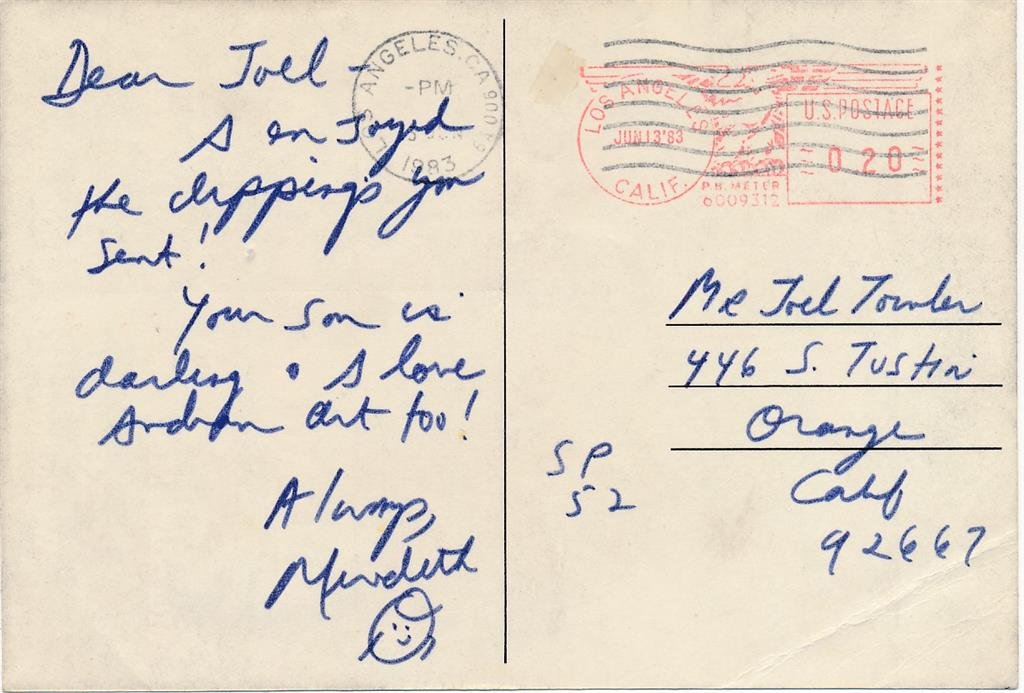 Dear Joel -
I enjoyed
the clippings you
sent!
Your son is
darling. I love
Indian art too!
Always,
Meredith
LOS ANGELES, CA 900
-PM
1983
LOS ANGELES
JUN 13 '83
CALIF.
P.B. METER
6009312
U.S. POSTAGE
020
Mr Joel Towler
446 S. Tustin
Orange
Calif
92667
SP
52